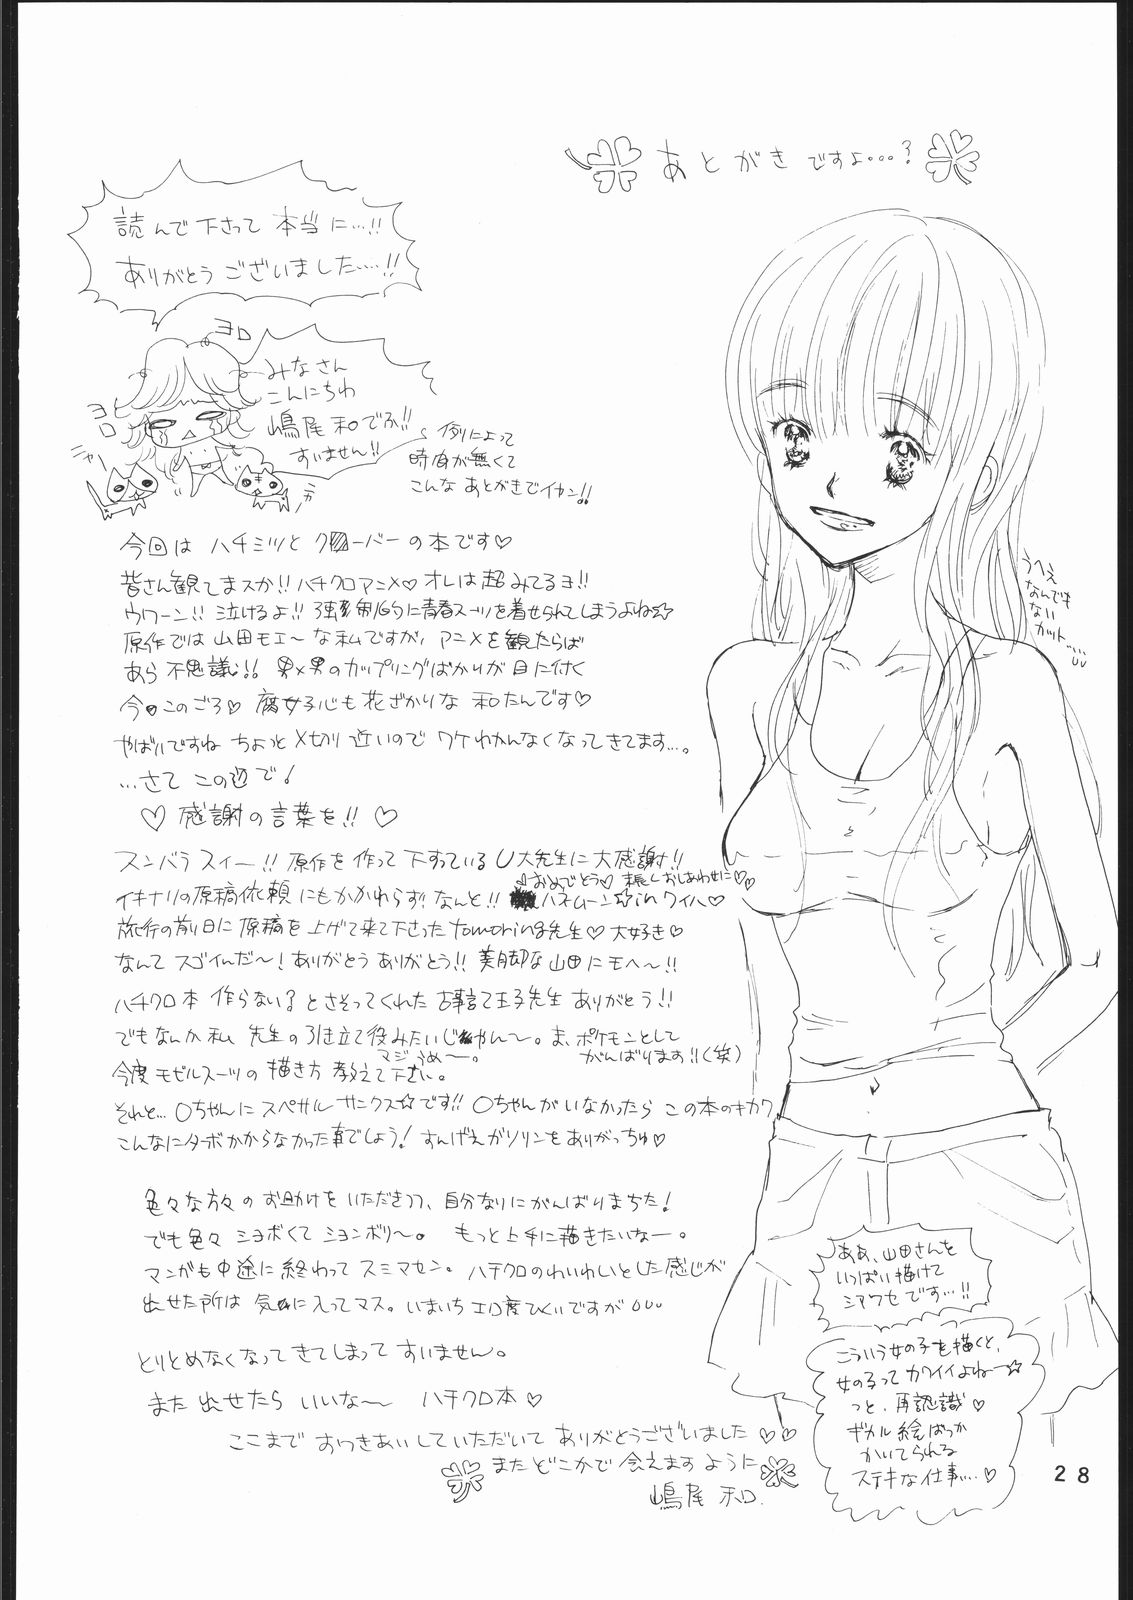 あとがきですよ…?
読んで下さって本当に…!!
ありがとうございました…!!
ヨロ
ヨロ
ニャー
みなさん
こんにちわ
嶋尾和です!!
すいません!!
例によって
時間が無くて
こんなあとがきでイカン!!
今回はハチミツとクローバーの本です♡
皆さん観てまスか!! ハチクロアニメ♡ オレは超みてるヨ!!
ウワーン!! 泣けるよ!! 強制的に青春スーツを着せられてしまうよね☆
原作では山田モエ〜な私ですが、アニメを観たらば
あら不思議!! 男×男のカップリングばかりが目に付く
今日このごろ♡ 腐女子心も花ざかりな和たんです♡
やばいですね ちょっと〆切り近いのでワケわかんなくなってきてます…。
…さて この辺で!
♡ 感謝の言葉を!! ♡
スンバラスィー!! 原作を作って下すっているU大先生に大感謝!!
イキナリの原稿依頼にもかかわらず! なんと!! ハネムーン☆inワイハ♡
♡おめでとう♡ 末長くおしあわせに♡♡
旅行の前日に原稿を上げて来て下さったtomoring先生♡大好き♡
なんてスゴイんだ〜! ありがとうありがとう!! 美脚な山田にモヘ〜!!
ハチクロ本作らない? とさそってくれた古事言て王子先生ありがとう!!
でもなんか私 先生の引き立て役みたいじゃん〜。ま、ポケモンとして
がんばります!!(笑)
マジうめ〜。
今度モゼルスーツの描き方教えて下さい。
それと…〇ちゃんにスペサルサンクス☆です!! 〇ちゃんがいなかったらこの本のキカク
こんなにターボかからなかった事でしょう! すんげえガソリンをありがっちゅ♡
色々な方々のお助けをいただきつつ、自分なりにがんばりまちた!
でも色々ショボくてションボリ〜。 もっと上手に描きたいなー。
マンガも中途に終わってスミマセン。ハチクロのわいわいとした感じが
出せた所は気に入ってマス。いまいちエロ度ひくいですが
とりとめなくなってきてしまってすいません。
また出せたらいいな〜 ハチクロ本♡
ここまでおつきあいしていただいてありがとうございました♡♡
またどこかで会えますように
嶋尾 和.
うへえ
なんでも
ない
カット…
ああ、山田さんを
いっぱい描けて
シアワセです…!!
こういう女の子を描くと、
女の子ってカワイイよね〜☆
っと、再認識♡
ギカル絵ばっか
かいてられる
ステキな仕事…♡
28